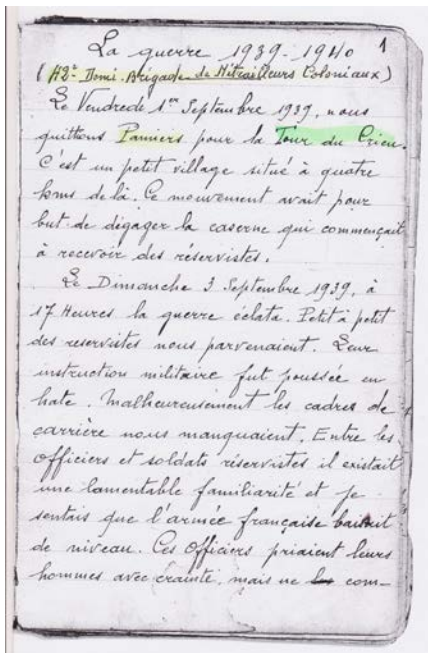 1
La guerre 1939-1940
(42e Demi-Brigade de Mitrailleurs Coloniaux)
Le Vendredi 1er Septembre 1939, nous
quittons Pamiers pour la Tour du Crieu.
C'est un petit village situé à quatre
kms de là. Ce mouvement avait pour
but de dégager la caserne qui commençait
à recevoir des réservistes.
Le Dimanche 3 Septembre 1939, à
17 Heures la guerre éclata. Petit à petit
des reservistes nous parvenaient. Leur
instruction militaire fut poussée en
hate. Malheureusement les cadres de
carrière nous manquaient. Entre les
officiers et soldats réservistes il existait
une lamentable familiarité et je
sentais que l'armée française baissait
de niveau. Ces Officiers priaient leurs
hommes avec crainte, mais ne com-